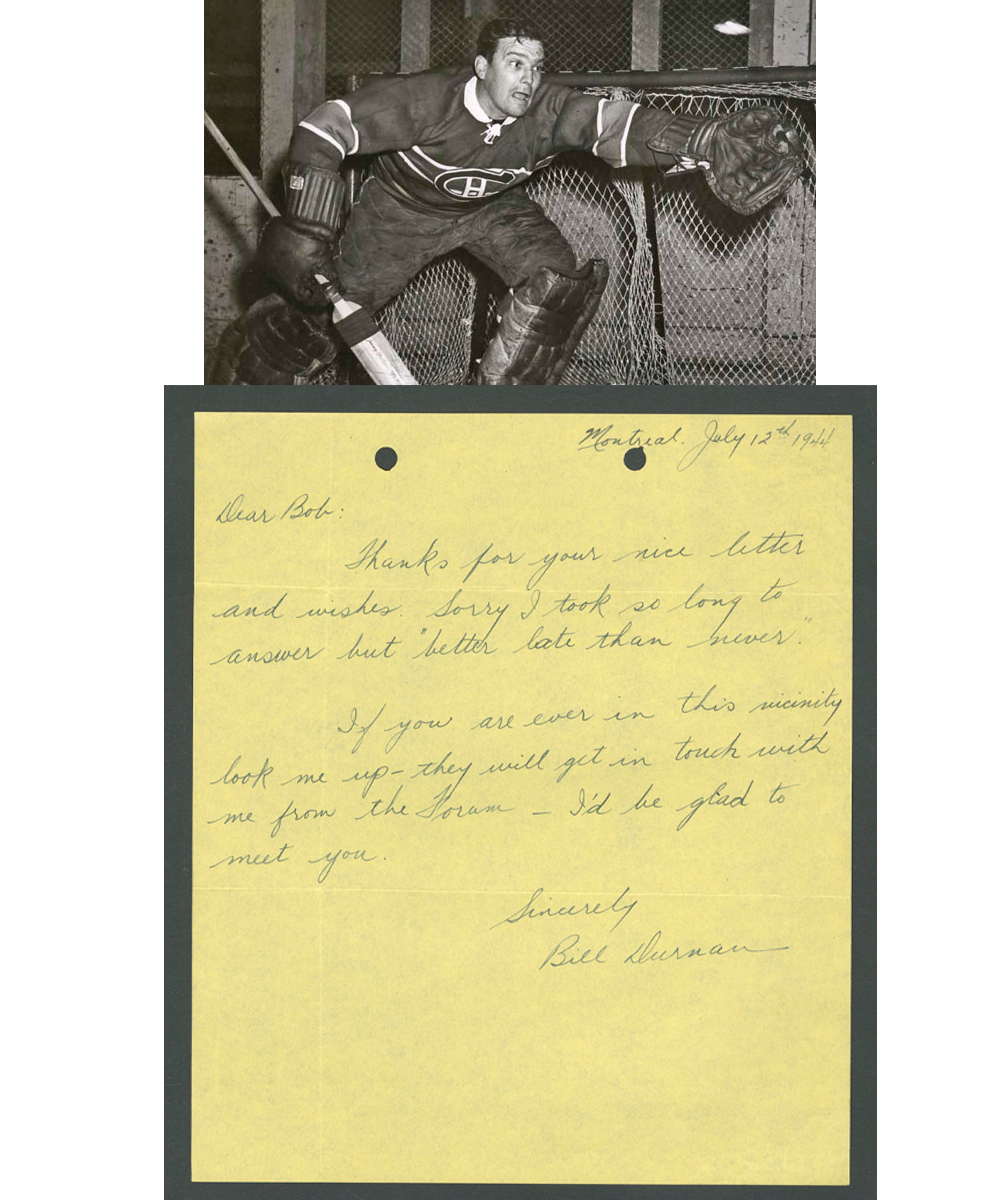 Montreal. July 12th 1944
Dear Bob:
Thanks for your nice letter
and wishes. Sorry I took so long to
answer but "better late than never."
If you are ever in this vicinity
look me up - they will get in touch with
me from the Forum - I'd be glad to
meet you.
Sincerely
Bill Durnan